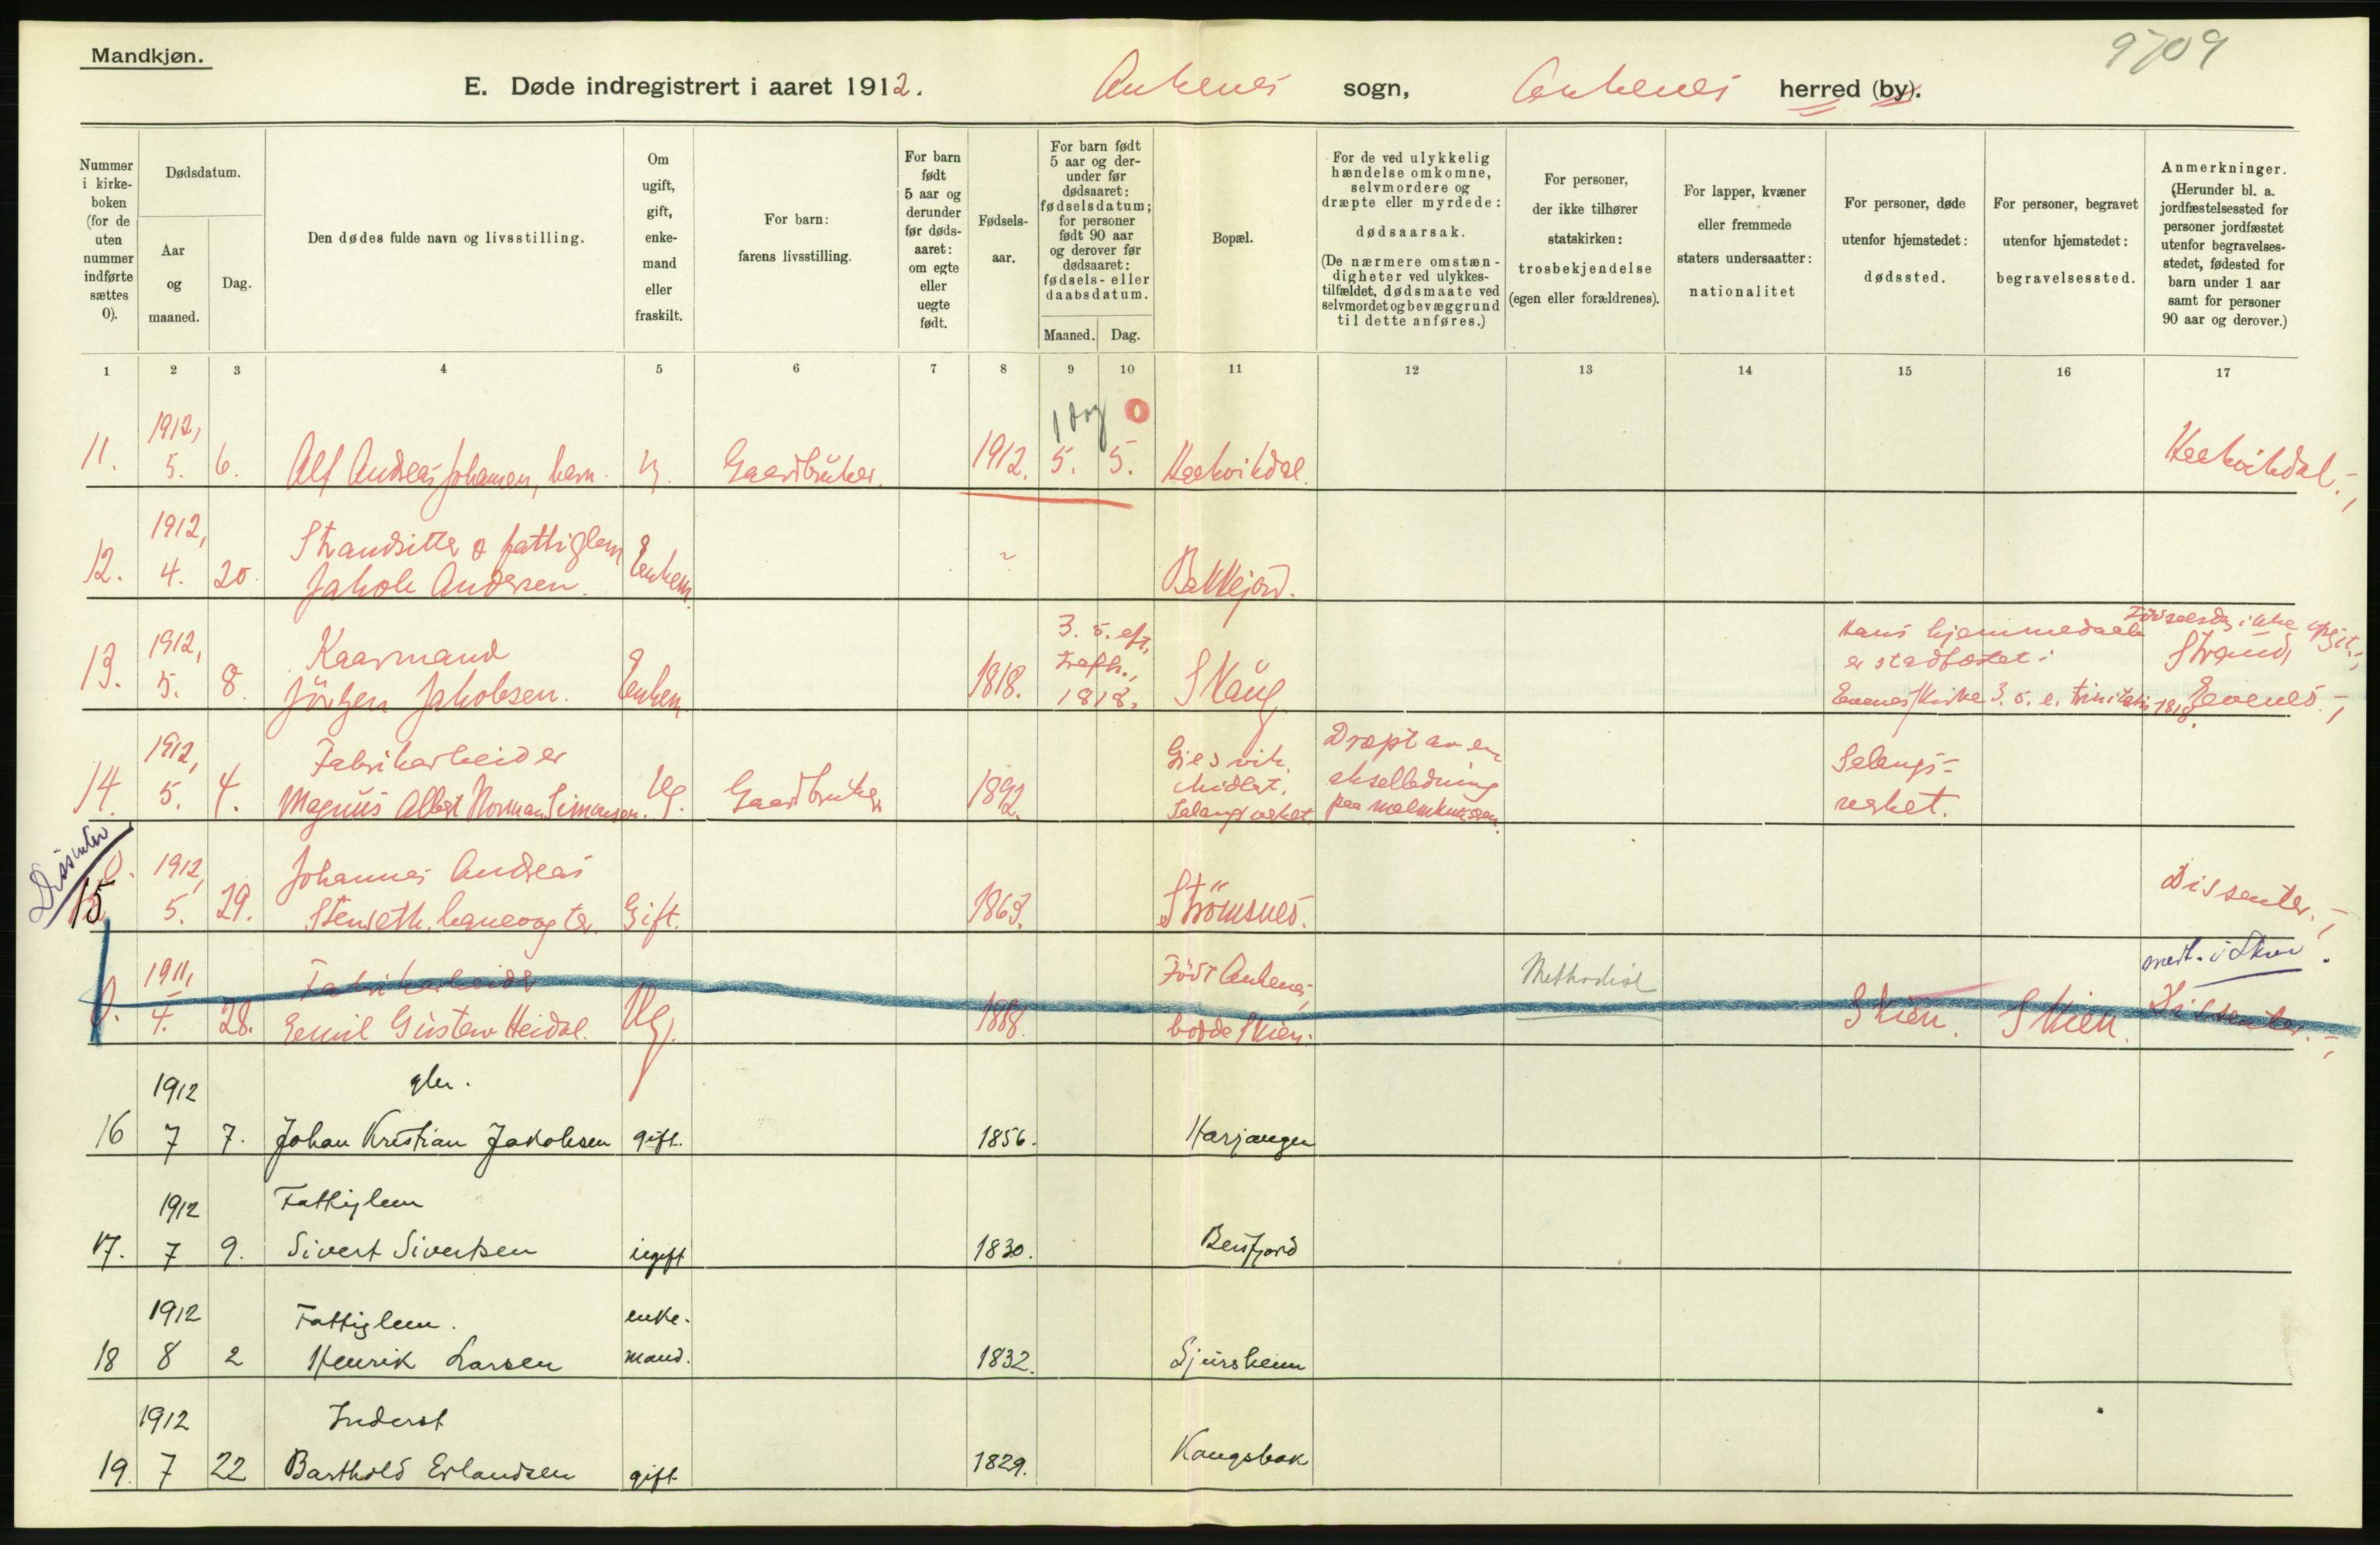 Mandkjøn.
9709
E. Døde indregistrert i aaret 1912. Ankenes sogn, Ankenes herred (by).
Nummer i kirkeboken (for de uten nummer indførte sættes 0).
Dødsdatum.
Aar og maaned.
Dag.
Den dødes fulde navn og livsstilling.
Om ugift, gift, enkemand eller fraskilt.
For barn: farens livsstilling.
For barn født 5 aar og derunder før dødsaaret: om egte eller uegte født.
Fødselsaar.
For barn født 5 aar og derunder før dødsaaret: fødselsdatum; for personer født 90 aar og derover før dødsaaret: fødsels- eller daabsdatum.
Maaned. Dag.
Bopæl.
For de ved ulykkelig hændelse omkomne, selvmordere og dræpte eller myrdede: dødsaarsak.
(De nærmere omstændigheter ved ulykkestilfældet, dødsmaate ved selvmordet og bevæggrund til dette anføres.)
For personer, der ikke tilhører statskirken: trosbekjendelse (egen eller forældrenes).
For lapper, kvæner eller fremmede staters undersaatter: nationalitet
For personer, døde utenfor hjemstedet: dødssted.
For personer, begravet utenfor hjemstedet: begravelsessted.
Anmerkninger.
(Herunder bl. a. jordfæstelsessted for personer jordfæstet utenfor begravelsesstedet, fødested for barn under 1 aar samt for personer 90 aar og derover.)
1 2 3 4 5 6 7 8 9 10 11 12 13 14 15 16 17
1 dag 0
11. 1912, 5. 6. Alf Andreas Johansen, barn. Gaardbruker. 1912. 5. 5.
1912, Strandsitter & fattiglem
12. 4. 20. Jakob Andersen. Enkem. Bakkejord.
1912, Kaarmand 3. s. eft. Hans hjemmedaab Fødselsdag ikke opgit.
13. 5. 8. Jörgen Jakobsen. Enkem. 1818. 1818. er stadfæstet i Strand,
Evenes Kirke 3. s. e. trinitatis 1818. Evenes.
1912, Fabrikarbeider Dræpt av en Salangs-
14. 5. 4. Magnus Albert Norman Simonsen. Ug. Gaardbruker 1892. midlert. Salangsverket. akselledning verket.
Dissenter
0. 1912, Johannes Andreas Dissenter.
15 5. 29. Stenseth, banevogter. Gift. 1863. Strömsnes.
1911, Fabrikarbeider Född Ankenes, Methodist
0. 4. 28. Emil Gustav Heidal. Ug. 1888. bodde Skien. Skien. Skien. Dissenter.
1912 gbr.
16 7 7. Johan Kristian Jakobsen gift. 1856. Harjangen
1912 Fattiglem
17. 7 9. Sivert Sivertsen ugift 1830. Beisfjord
1912 Fattiglem. enke-
18 8 2 Henrik Larsen mand. 1832. Sjursheim
1912 Inderst
19. 7 22 Barthold Erlandsen gift 1829. Kongsbak